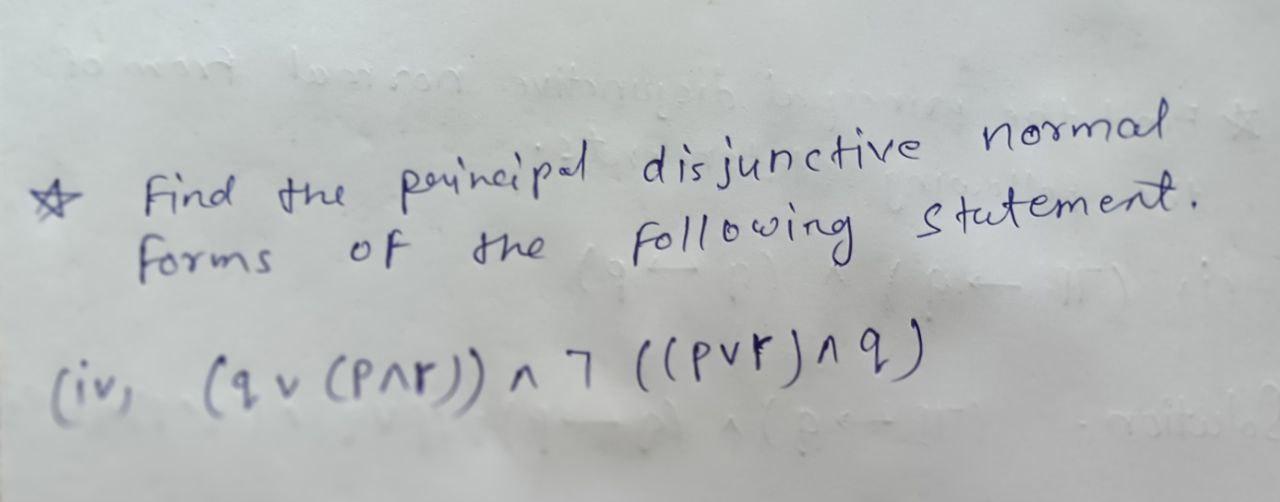 ☆ Find the principal disjunctive normal
forms of the following statement.
(iv) (q ∨ (p∧r)) ∧ ¬ ((p∨r) ∧ q)